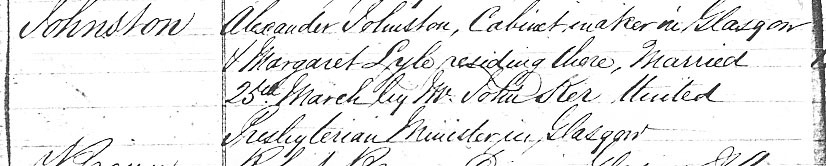 Johnston Alexander Johnston, Cabinet maker in Glasgow
& Margaret Lyle residing there, Married
25th March by Mr. John Ker United
Presbyterian Minister in Glasgow